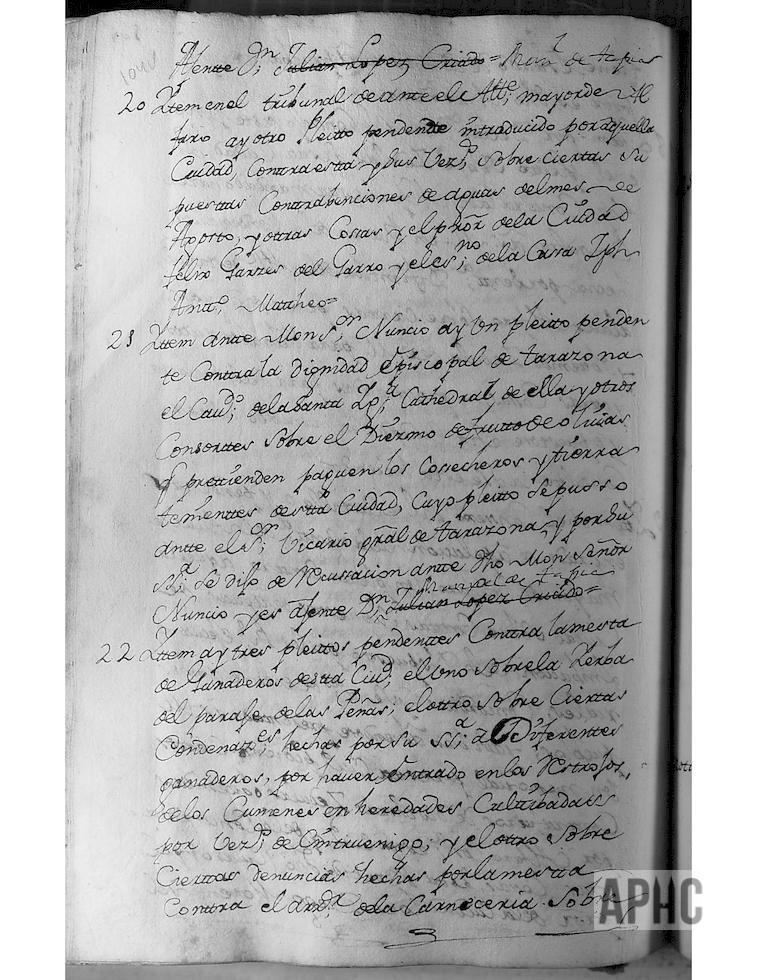 Ajente Dn; Julian Lopez Criado= Manl de tapias
20 Yttem enel tribunal de ante el Altte; mayor de Al
faro ay otro Pleitto pendentte introducido por aquella
Ciudad, Contra estta y sus Vezs; sobre ciertas su
puesttas Contrabenciones de aguas del mes de
Agosto, y ottras Cosas y el pror dela Ciudad
felix Garzes del Garro y el esno; de la Causa Jph
Antto; Mattheo=
21 Yttem antte Monsor; Nuncio ay Un pleitto penden
te Contra la dignidad Episcopal de tarazona
el Cavdo; dela Santa Ygla; Cathedral de ella y otros
Consorttes sobre el Diezmo de frutto de olivas
q prettienden paguen los Cosecheros y tierra
tenienttes de estta Ciudad, cuyo pleitto se pusso
antte el Sor; Vicario gral de tarazona, y por su
SSa; se dijo de Recussacion antte dho Mon Señor
Manuel de tapia
Nuncio y es Ajente Dn; Julian Lopez Criado=
22 Yttem ay tres pleittos pendienttes Conttra la mesta
de Ganaderos de stta Ciud; el Uno sobre la Yerba
del paraje de las Peñas; el ottro sobre Ciertas
Condenattes; hechas por su SSa; a Diferenttes
ganaderos, por haver Entrado en los Rstrojos,
de los Cumenes en heredades Culttibadass
por Vezs; de Cinttruenigo; y el ottro sobre
Cierttas denuncias hechas por la mestta
Conttra el arrdor; de la Carneceria sobre
APHC